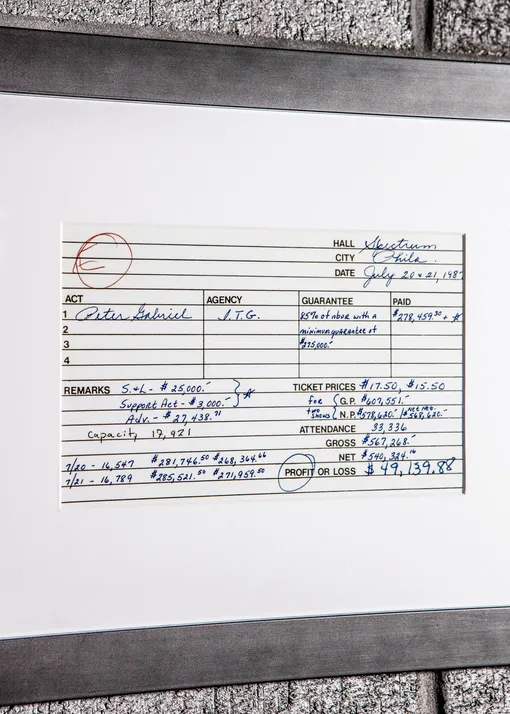 E
HALL Spectrum
CITY Phila.
DATE July 20 & 21, 1987
ACT AGENCY GUARANTEE PAID
1 Peter Gabriel I.T.G. 85% of nbor with a $278,459.30 + ☆
2 minimum guarantee of
3 $275,000.-
4
REMARKS S.&L- $25,000.- TICKET PRICES $17.50, $15.50
Support Act - $3,000.- ☆ for two shows G.P. $607,551.-
Adv. - $27,438.71 N.P. $578,620.- / Net Net $568,620.-
Capacity 17,921 ATTENDANCE 33,336
GROSS $567,268.-
7/20 - 16,547 $281,746.50 $268,364.66 NET $540,324.16
7/21 - 16,789 $285,521.50 $271,959.50 PROFIT OR LOSS $49,139.88